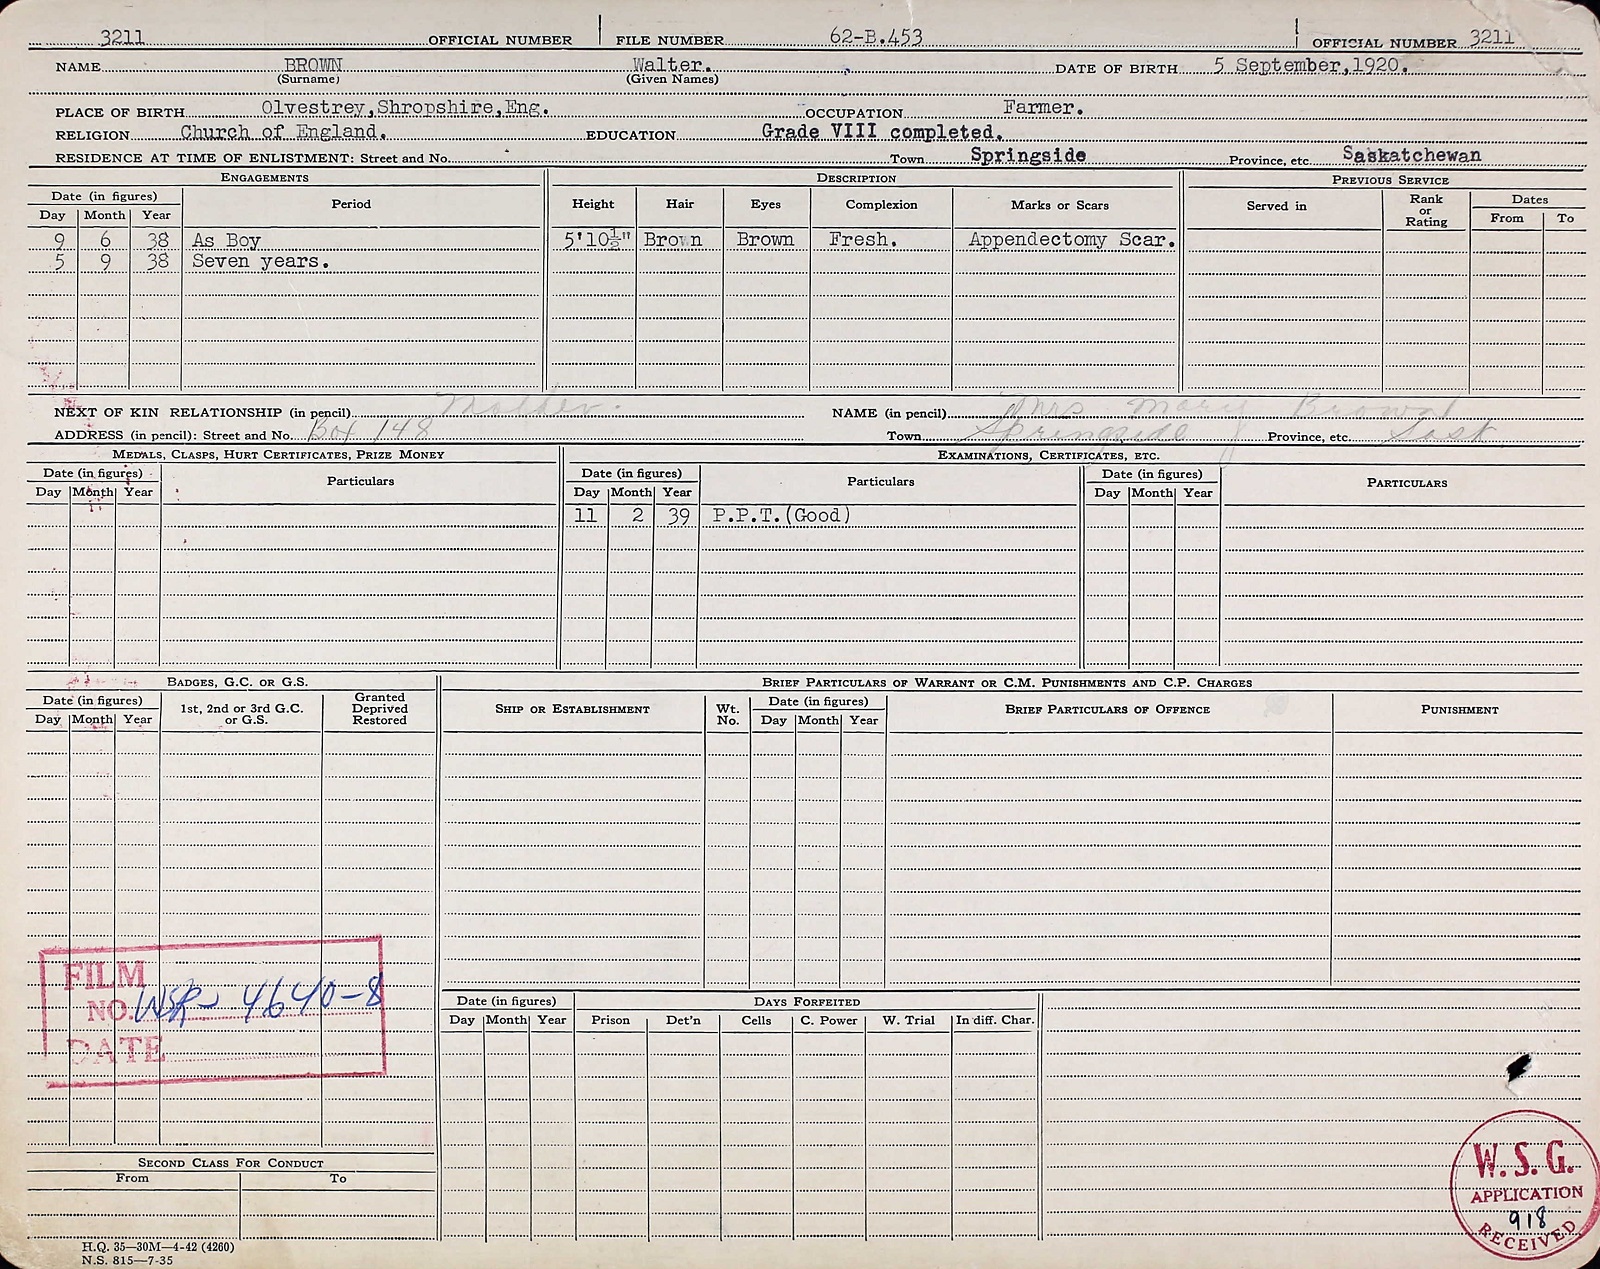 3211 OFFICIAL NUMBER FILE NUMBER 62-B.453 OFFICIAL NUMBER 3211
NAME BROWN Walter. DATE OF BIRTH 5 September,1920.
(Surname) (Given Names)
PLACE OF BIRTH Olvestrey,Shropshire,Eng. OCCUPATION Farmer.
RELIGION Church of England. EDUCATION Grade VIII completed.
RESIDENCE AT TIME OF ENLISTMENT: Street and No. Town Springside Province, etc. Saskatchewan
ENGAGEMENTS DESCRIPTION PREVIOUS SERVICE
Date (in figures) Period Height Hair Eyes Complexion Marks or Scars Served in Rank or Rating Dates
Day Month Year From To
9 6 38 As Boy 5'10½" Brown Brown Fresh. Appendectomy Scar.
5 9 38 Seven years.
NEXT OF KIN RELATIONSHIP (in pencil) Mother. NAME (in pencil) Mrs Mary Brown
ADDRESS (in pencil): Street and No. Box 148 Town Springside Province, etc. Sask
MEDALS, CLASPS, HURT CERTIFICATES, PRIZE MONEY EXAMINATIONS, CERTIFICATES, ETC.
Date (in figures) Particulars Date (in figures) Particulars Date (in figures) PARTICULARS
Day Month Year Day Month Year Day Month Year
11 2 39 P.P.T.(Good)
BADGES, G.C. OR G.S. BRIEF PARTICULARS OF WARRANT OR C.M. PUNISHMENTS AND C.P. CHARGES
Date (in figures) 1st, 2nd or 3rd G.C. or G.S. Granted Deprived Restored SHIP OR ESTABLISHMENT Wt. No. Date (in figures) BRIEF PARTICULARS OF OFFENCE PUNISHMENT
Day Month Year Day Month Year
FILM
NO. WSR- 4640-8
DATE
Date (in figures) DAYS FORFEITED
Day Month Year Prison Det'n Cells C. Power W. Trial In diff. Char.
SECOND CLASS FOR CONDUCT
From To
W.S.G.
APPLICATION
918
RECEIVED
H.Q. 35—30M—4-42 (4260)
N.S. 815—7-35